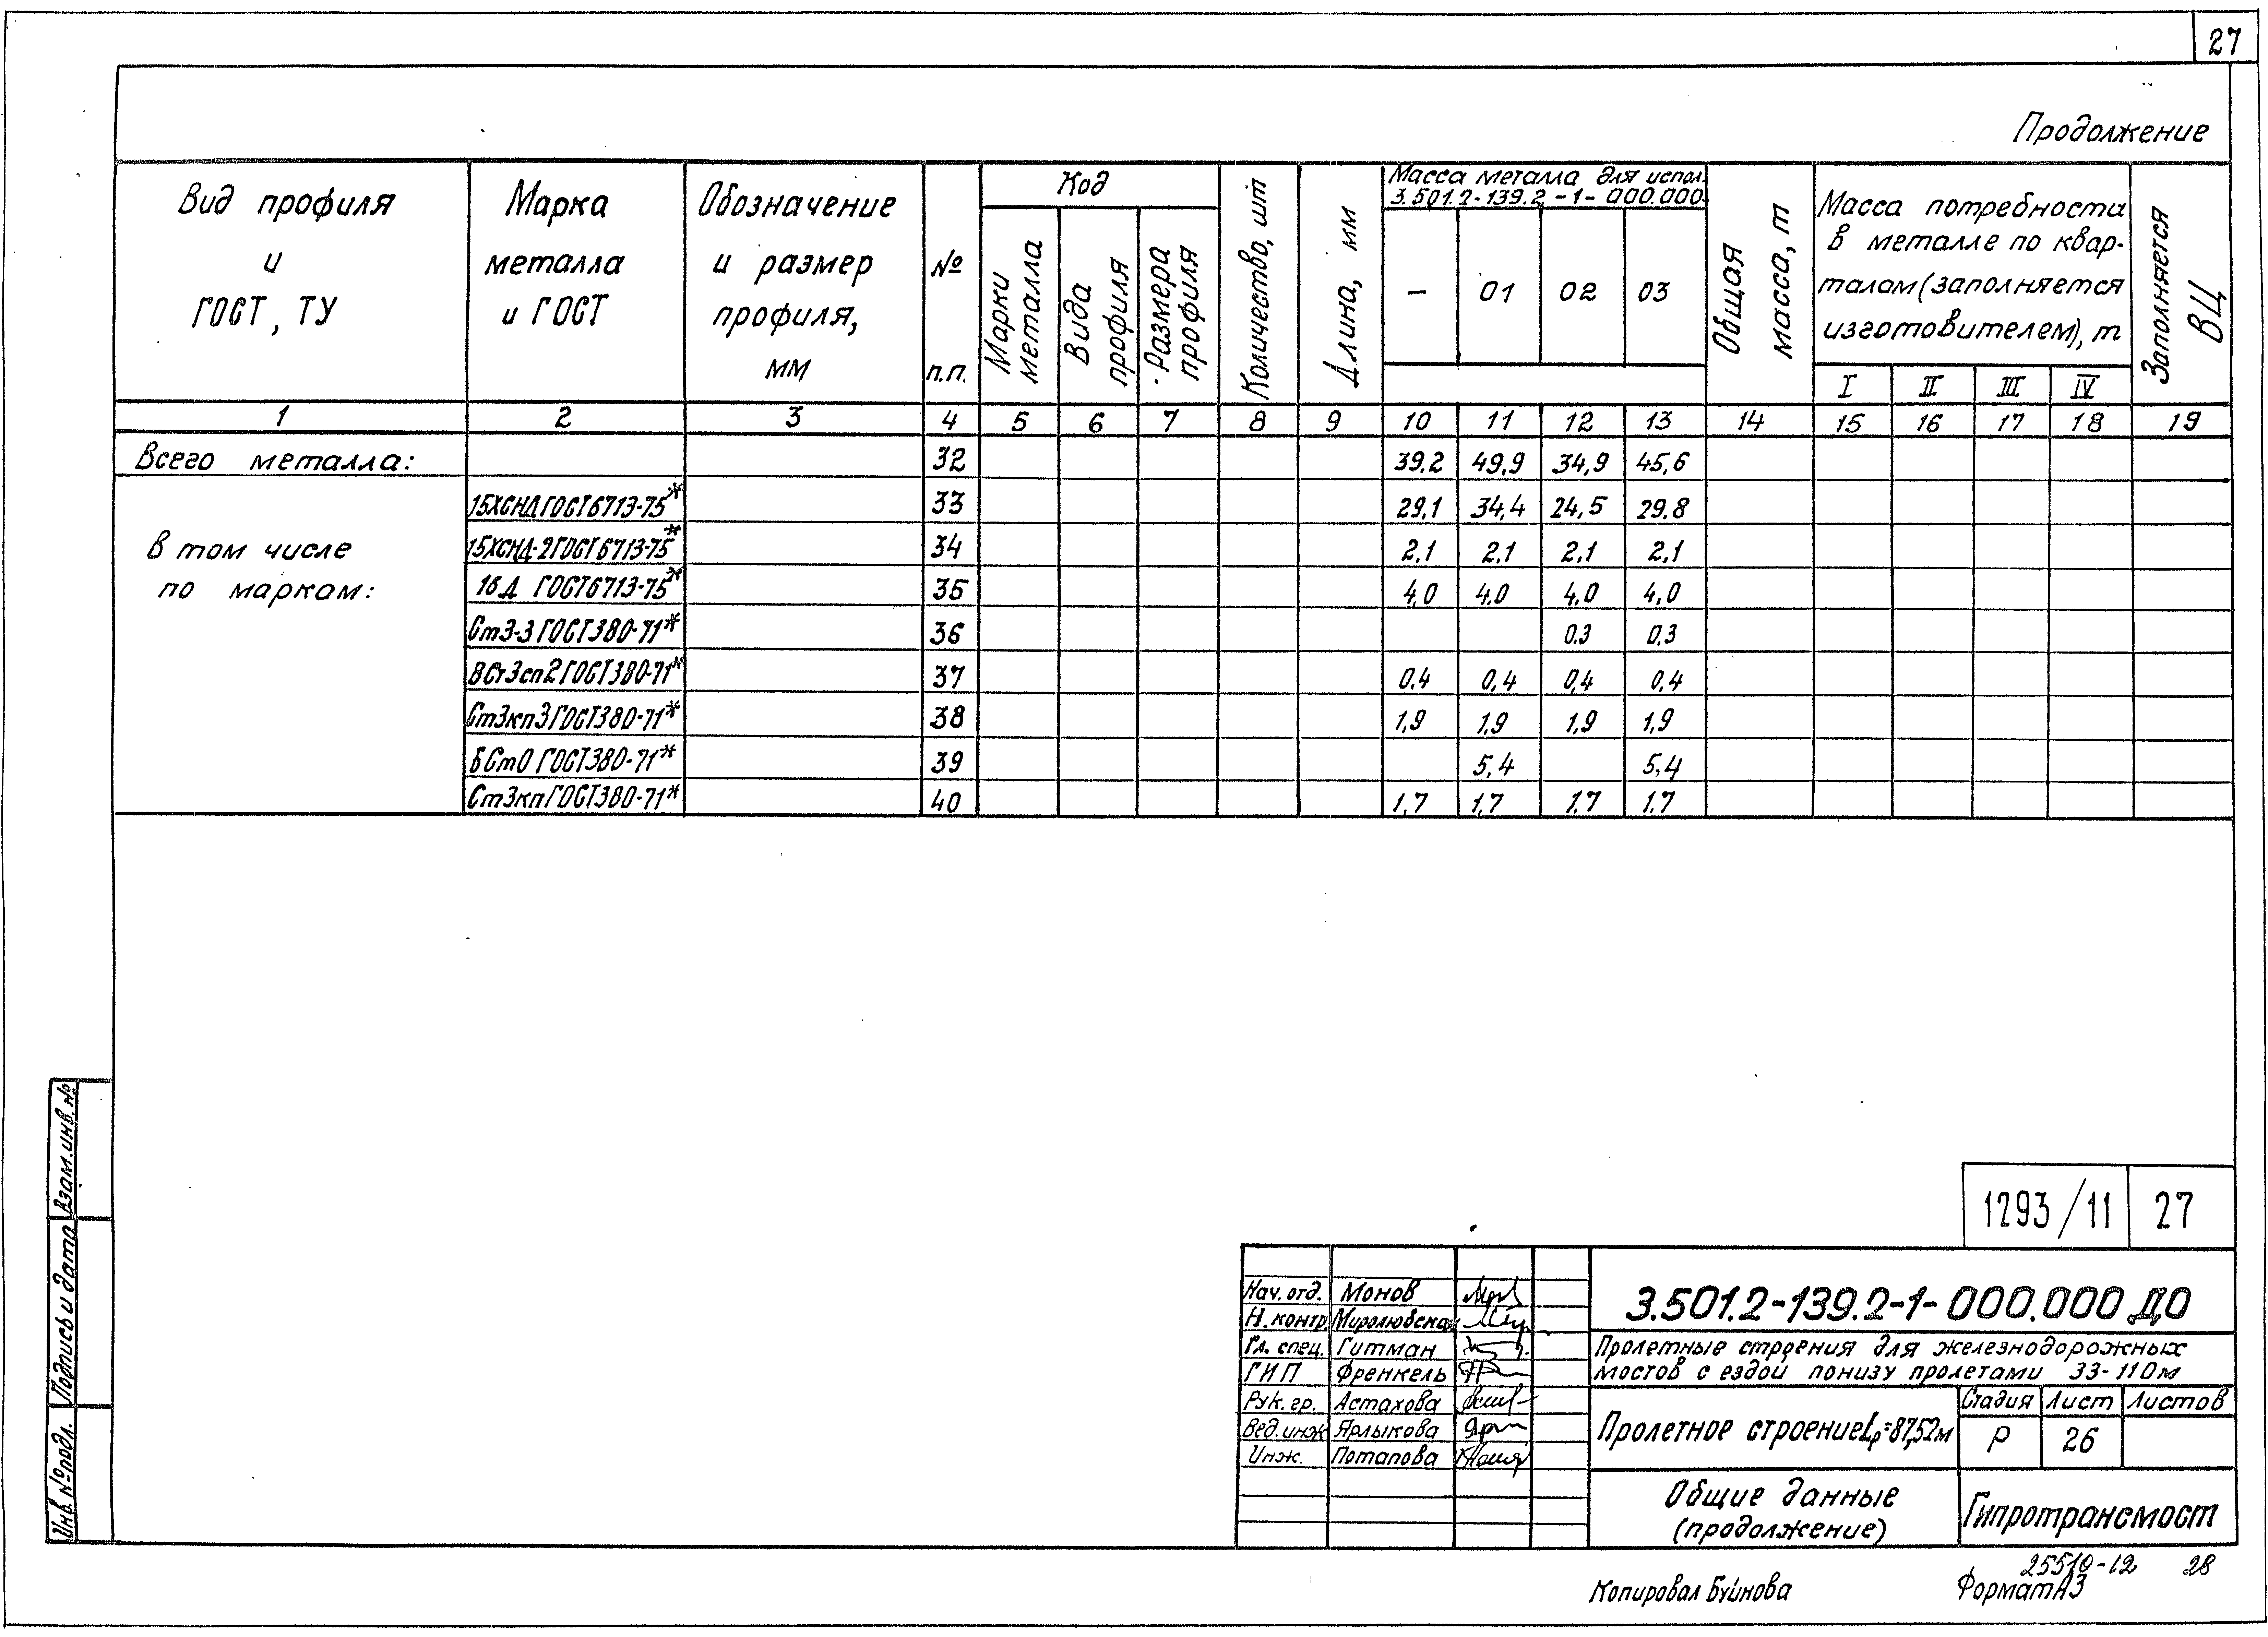 27
Продолжение
Вид профиля и ГОСТ, ТУ
Марка металла и ГОСТ
Обозначение и размер профиля, мм
№ п.п.
Код
Марки металла
Вида профиля
Размера профиля
Количество, шт
Длина, мм
Масса металла для испол.
3.501.2-139.2-1-000.000-
— 01 02 03
Общая масса, т
Масса потребности
в металле по квар-
талам (заполняется
изготовителем), т
I II III IV
Заполняется ВЦ
1 2 3 4 5 6 7 8 9 10 11 12 13 14 15 16 17 18 19
Всего металла: 32 39.2 49,9 34,9 45,6
15ХСНД ГОСТ6713-75* 33 29,1 34,4 24,5 29,8
В том числе
по маркам:
15ХСНД-2ГОСТ6713-75* 34 2,1 2,1 2,1 2,1
16Д ГОСТ6713-75* 35 4,0 4.0 4.0 4,0
Ст3-3 ГОСТ380-71* 36 0.3 0,3
ВСт3сп2 ГОСТ380-71* 37 0.4 0,4 0,4 0,4
Ст3кп3 ГОСТ380-71* 38 1,9 1,9 1,9 1,9
БСт0 ГОСТ380-71* 39 5,4 5,4
Ст3кп ГОСТ380-71* 40 1,7 1,7 1,7 1.7
Взам.инв.№
Подпись и дата
Инв.№подл.
1293/11 27
Нач.отд. Монов
Н.контр Миролюбская
Гл. спец. Гитман
ГИП Френкель
Рук.гр. Астахова
Вед.инж Ярлыкова
Инж. Потапова
3.501.2-139.2-1-000.000 ДО
Пролетные строения для железнодорожных
мостов с ездой понизу пролетами 33-110м
Пролетное строение Lр=87,52м
Стадия Лист Листов
Р 26
Общие данные
(продолжение)
Гипротрансмост
25510-12 28
Копировал Буинова
Формат А3